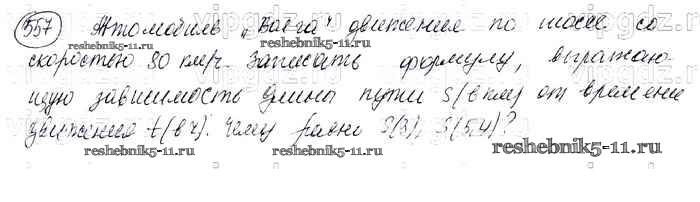 557 Автомобиль „Волга" движения по шоссе со
скоростью 80 км/ч. Записать формулу, выражаю-
щую зависимость длины пути S (в км) от времени
движения t (в ч). Чему равны S(3), S(5,4)?
reshebnik5-11.ru
reshebnik5-11.ru
reshebnik5-11.ru
reshebnik5-11.ru